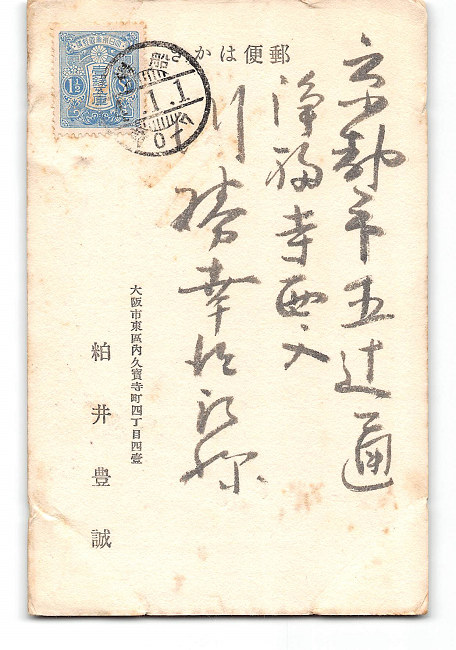 郵便はかき
京都市五辻通
浄福寺西入
川勝幸次郎
大阪市東區內久寶寺町四丁目四壹
粕井豊誠
大日本帝國郵便
1½ 壹錢五厘
1.1